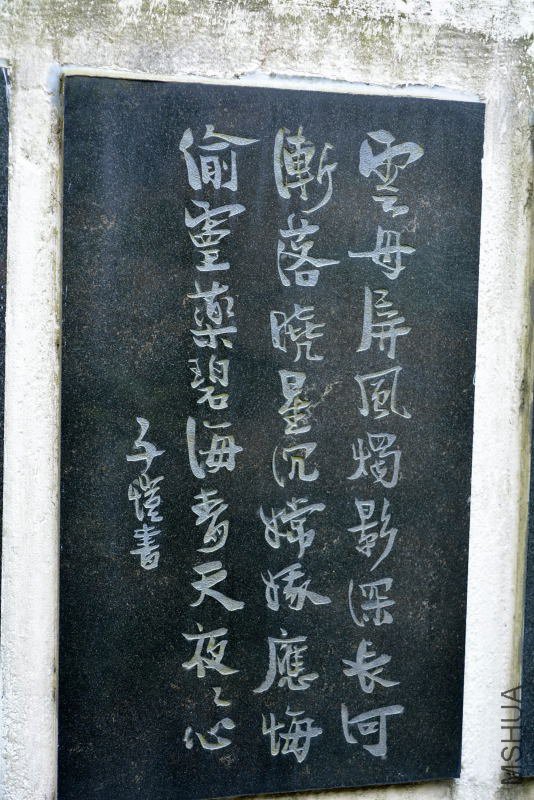 雲母屏風燭影深長河
漸落曉星沉嫦娥應悔
偷靈藥碧海青天夜〻心
子愷書
MSHUA